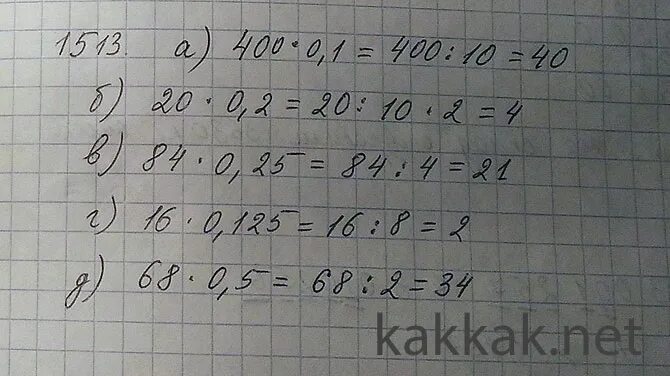 1513. а) 400 · 0,1 = 400 : 10 = 40
б) 20 · 0,2 = 20 : 10 · 2 = 4
в) 84 · 0,25 = 84 : 4 = 21
г) 16 · 0,125 = 16 : 8 = 2
д) 68 · 0,5 = 68 : 2 = 34
kakkak.net